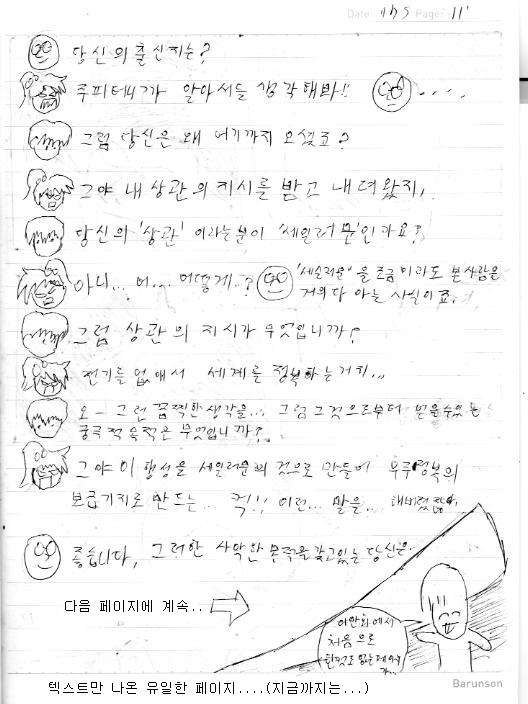 Date: Page: 11
당신의 출신지는?
주피터니가 알아서들 생각해봐!! ....
그럼 당신은 왜 여기까지 오셨죠?
그야 내 상관의 지시를 받고 내려왔지,
당신의 '상관' 이라는 분이 '세일러문'인가요?
아니... 어... 어떻게..? '세일러문'을 조금이라도 본 사람은
거의 다 아는 사실이죠.
그럼 상관의 지시가 무엇입니까?
전기를 없애서 세계를 정복하는 거지...
오- 그런 끔찍한 생각을... 그럼 그것으로부터 얻을 수 있는
궁극적 목적은 무엇입니까?
그야 이 행성을 세일러문의 것으로 만들어 우주정복의
보급기지로 만드는... 컥!! 이런... 말을... 해버렸잖아.
좋습니다, 그러한 사악한 목적을 갖고있는 당신은.
다음 페이지에 계속..
이만화에서
처음으로
Barunson
텍스트만 나온 유일한 페이지....(지금까지는...)